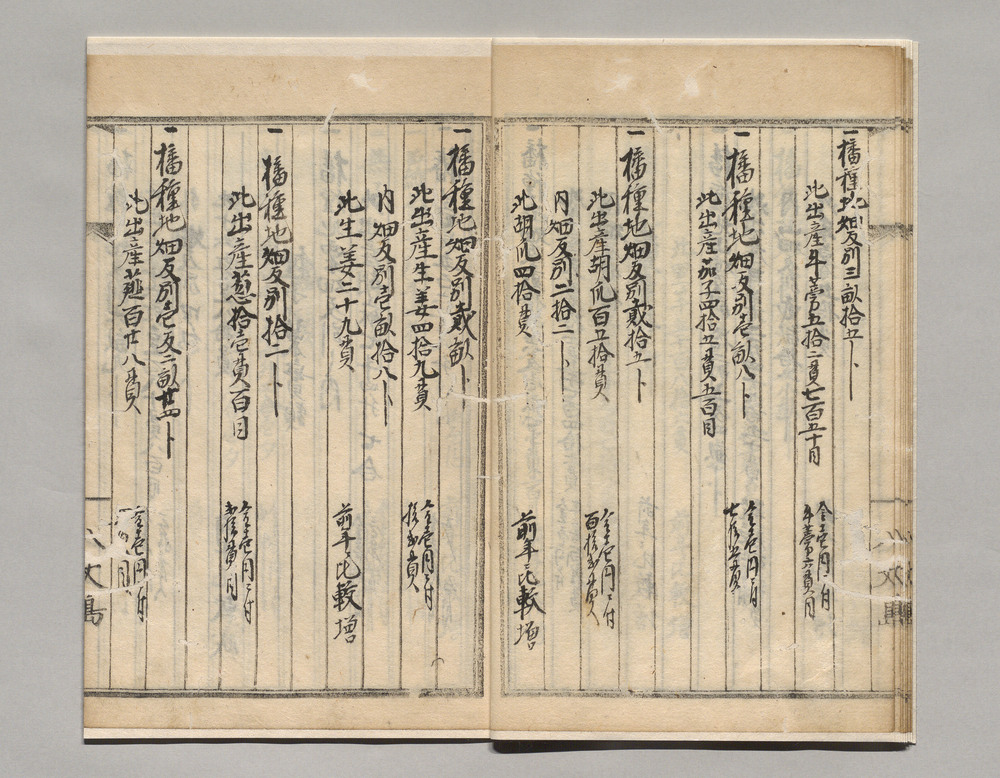 一 播種地畑反別三畝拾五卜
此出産牛蒡五拾二貫七百五十目
金壱円ニ付
牛蒡六貫目
一 播種地畑反別壱畝八卜
此出産茄子四拾五貫五百目
金壱円ニ付
七拾五貫
一 播種地畑反別貳拾五卜
此出産胡瓜百五拾貫
金壱円ニ付
内畑反別二拾二卜
此胡瓜四拾貫
前年比較増
一 播種地畑反別貳畝卜
此出産生姜四拾九貫
金壱円ニ付
内畑反別壱畝拾八卜
此生姜二十九貫
前年比較増
一 播種地畑反別拾一卜
此出産葱拾壱貫百目
金壱円ニ付
一 播種地畑反別壱反二畝廿四卜
此出産 百廿八貫
金壱円ニ付